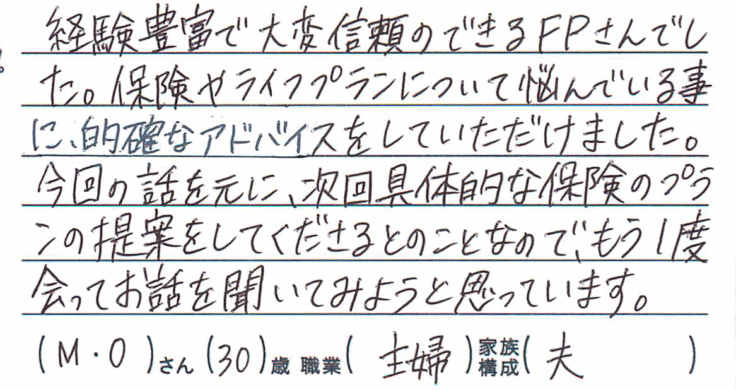 経験豊富で大変信頼のできるFPさんでし
た。保険やライフプランについて悩んでいる事
に、的確なアドバイスをしていただけました。
今回の話を元に、次回具体的な保険のプラ
ンの提案をしてくださるとのことなので、もう1度
会ってお話を聞いてみようと思っています。
(M・O)さん(30)歳 職業(主婦)家族構成(夫)